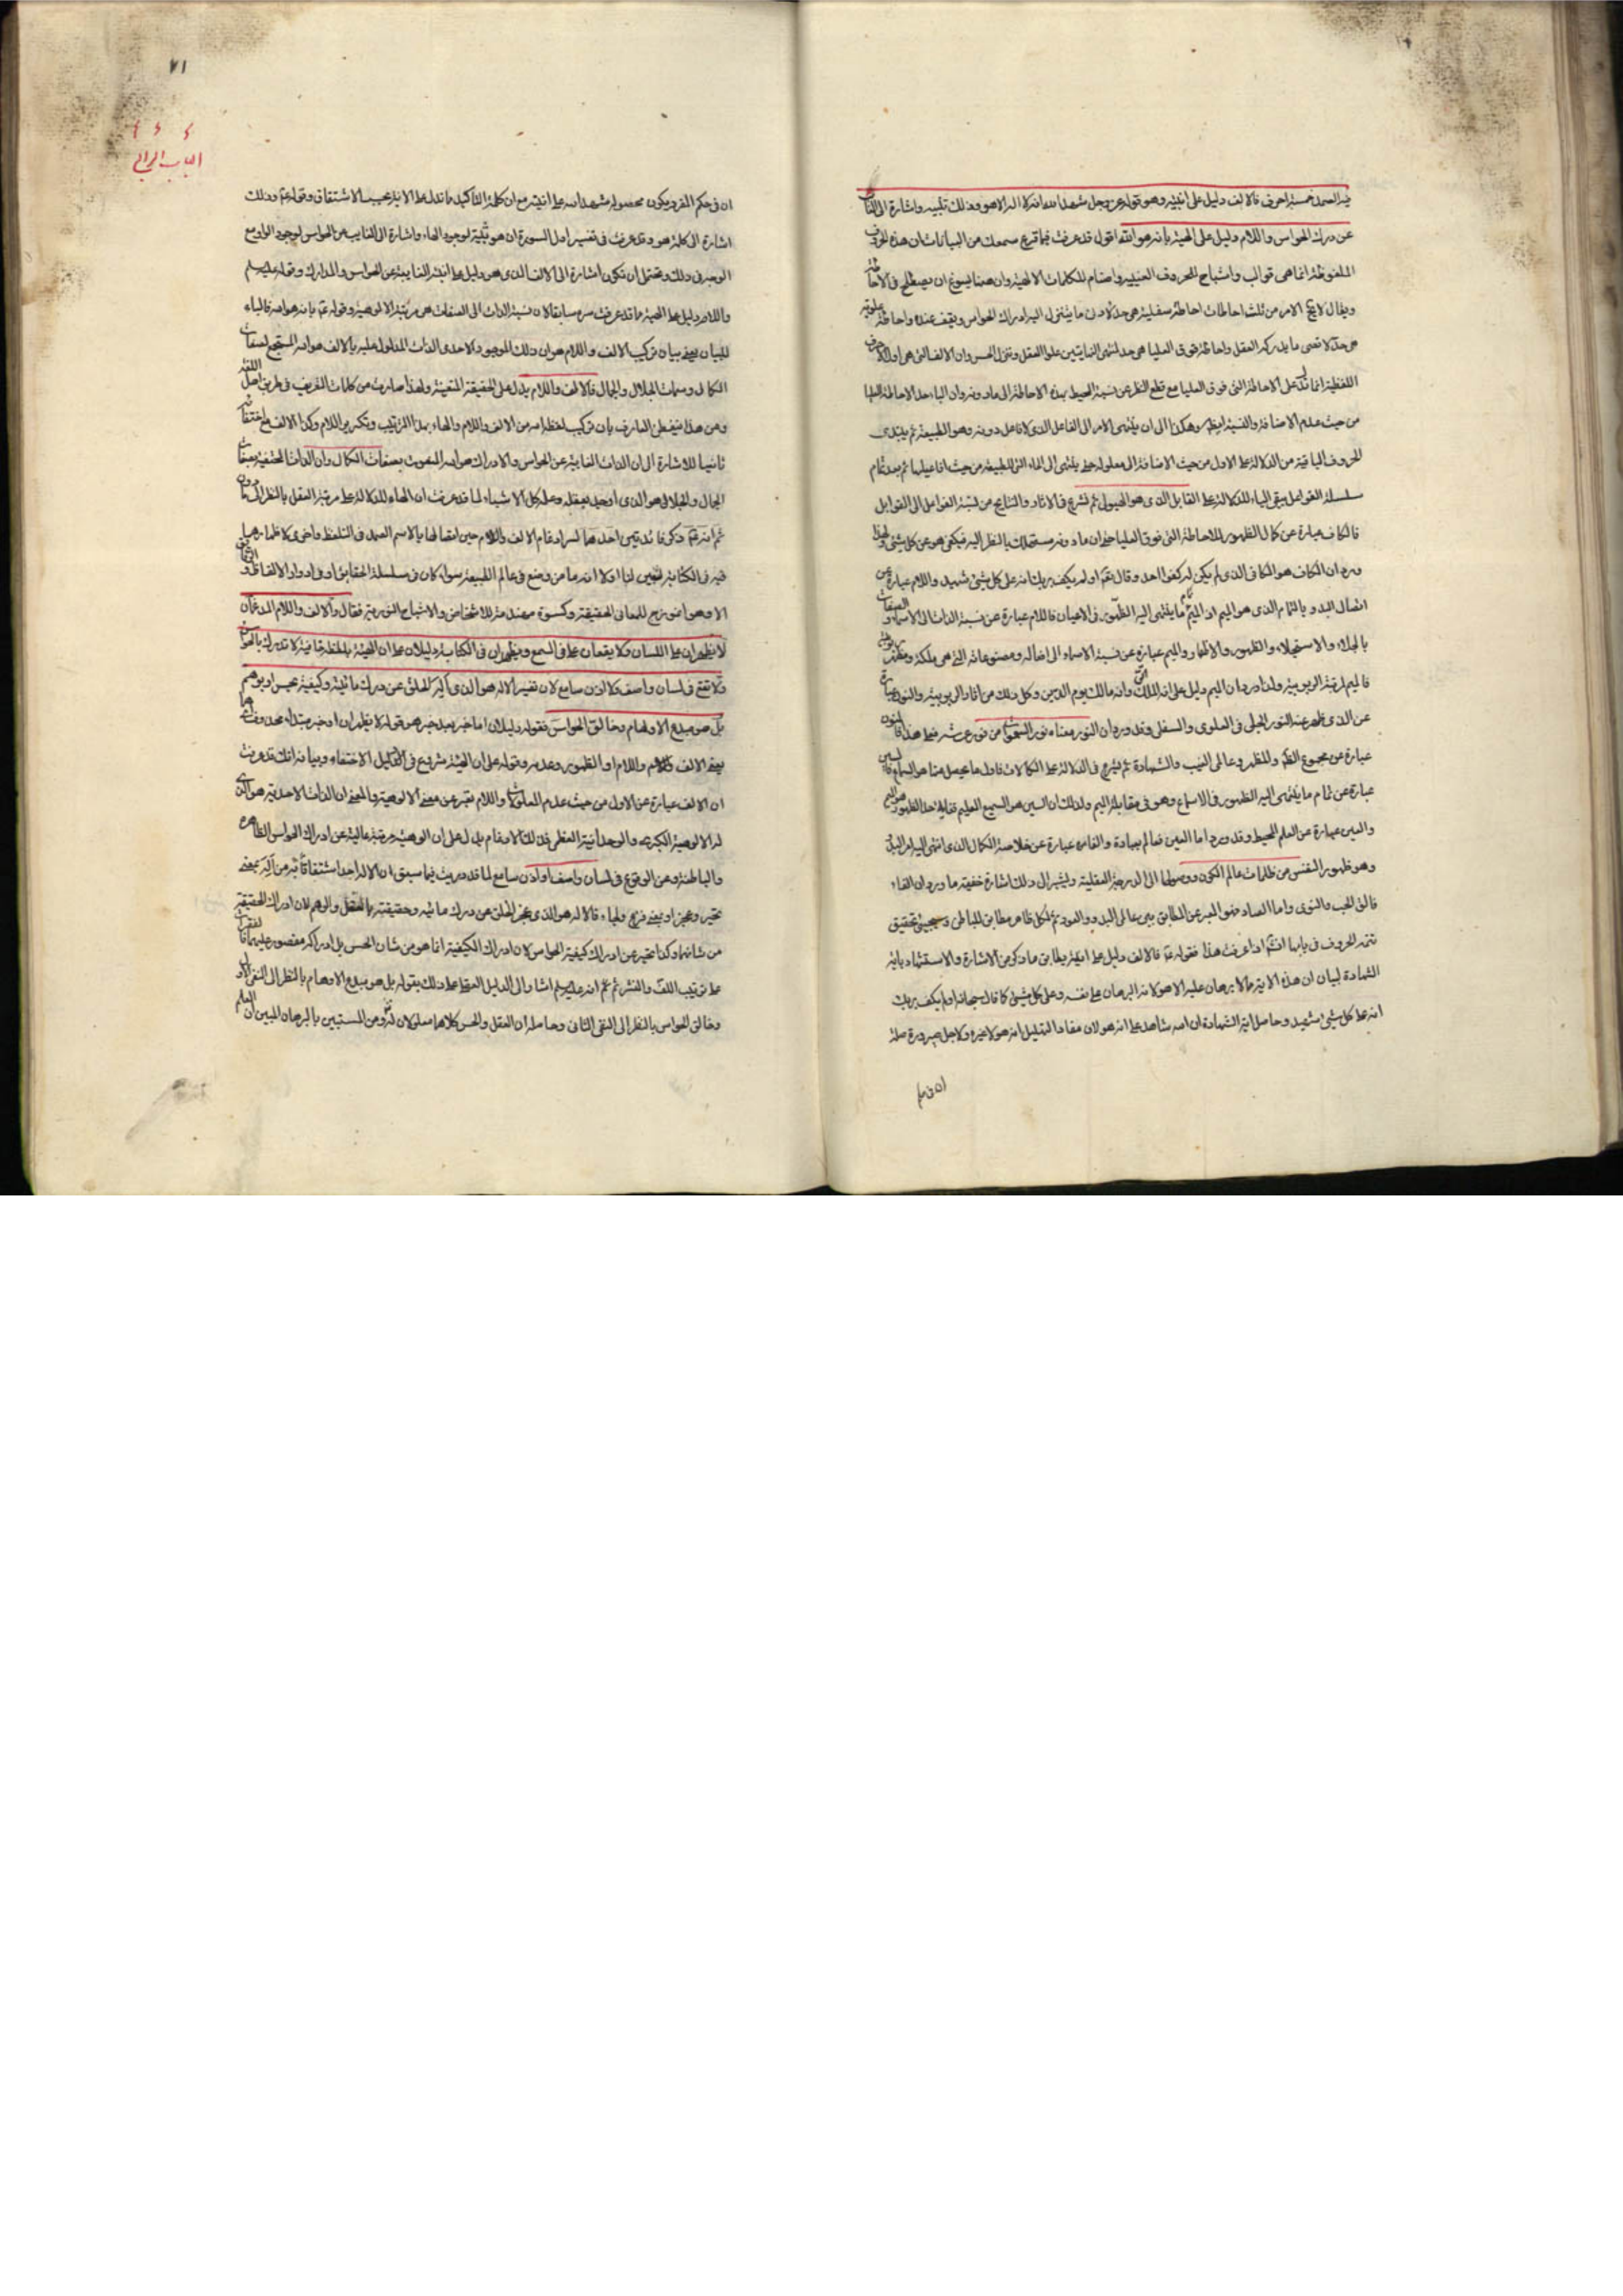 فيه الصمد خمسة احرف فالالف دليل على انيته وهو قوله عز وجل شهد الله انه لا اله الا هو وذلك تنبيه واشارة الى الغائب
عن درك الحواس واللام دليل على الهيته بانه هو الله اقول قد عرفت فيما قرع سمعك من البيانات ان هذه الحروف
الملفوظة انما هى قوالب واشباح للحروف الغيبية واصنام للكلمات الالهية وان ههنا يسوغ ان يصطلح فى الاحاطة
ويقال لا يخ الامر من ثلث احاطات احاطة سفلية هى حد الادنى ما يتنزل اليه ادراك الحواس ويقف عنده واحاطة علوية
هى حد لاقصى ما يدركه العقل واحاطة فوق العليا هى حد لمنتهى النهايتين علو العقل وتنزل الحس وان الالف التى هى اول الحروف
اللفظية انما تدل على الاحاطة التى فوق العليا مع قطع النظر عن نسبة المحيط بهذه الاحاطة الى ما دونه وان الباء حد الاحاطة العليا
من حيث عدم الاضافة والنسبة اليه وهكذا الى ان ينتهى الامر الى الفاعل الذى لا فاعل دونه وهو الطبيعة ثم يبتدى
الحروف الباقية من الدلالة على الاول من حيث الاضافة الى معلوله حتى ينتهى الى التى للطبيعة من حيث افاعيلها ثم بعد تمام
سلسلة الفواعل يبقى الياء للدلالة على القابل الذى هو الهيولى ثم نشرع فى الاثار والنتايج من نسبة الفواعل الى القوابل
فالكاف عبارة عن كمال الظهور للاحاطة التى فوق العليا حتى ان ما دونه مستهلك بالنظر اليه فيكفى هو عن كل شئ ولهذا
ورد ان الكاف هو الكافى الذى لم يكن له كفوا احد وقال تعم اولم يكف بربك انه على كل شئ شهيد واللام عبارة عن
اتصال البدو بالتمام الذى هو الميم اذ الميم تمام ما ينتهى اليه الظهور فى الاعيان فاللام عبارة عن نسبة الذات الى الاسماء والصفات
بالجلاء والاستجلاء والظهور والاظهار والميم عبارة عن نسبة الاسماء الى افعاله ومصنوعاته التى هى ملكه
فالميم لمرتبة الربوبية ولذا ورد ان الميم دليل على انه الملك الحق وانه مالك يوم الدين وكل ذلك من اثار الربوبية والنون عبارة
عن الذى ظهر عنه النور الجلى فى العلوى والسفلى وقد ورد ان النور معناه نور السموات من نور عرشه فعلى هذا فالنون
عبارة عن مجموع المظهر وعالمى الغيب والشهادة ثم يشرع فى الدلالة على الكمالات فاول ما يحصل منها هو السماع فالسين
عبارة عن تمام ما ينتهى اليه الظهور فى الاسماع وهو فى مقابلة الميم ولذلك ان السين هو السميع العليم
والعين عبارة عن العلم المحيط وقد ورد اما العين فعالم بعباده والفاء عبارة عن خلاصة الكمال الذى انتهى اليه امر البدو
وهو ظهور النفس من ظلمات عالم الكون ووصولها الى الدرجة العقلية ويشير الى ذلك اشارة خفية ما ورد ان الفاء
فالق الحب والنوى واما الصاد فهو المعبر عن المطابق بين عالمى البدو والعود ثم لكل ظاهر مطابق للباطن وسيجئ تحقيق
تتمة الحروف فى بابها انشم اذا عرفت هذا فقوله عم فالالف دليل على انيته يطابق ما ذكر من الاشارة والاستشهاد باية
الشهادة لبيان ان هذه الاية مما لا برهان عليه الا هو لانه البرهان على نفسه وعلى كل شئ كما قال سبحانه اولم يكف بربك
انه على كل شئ شهيد وحاصل اية الشهادة ان الله شاهد على انه هو لان مفاد التهليل انه هو لا غيره ولاجل صيرورة صلة
ان فى حكم
٧١
الباب الرابع
ان فى حكم المفرد يكون محصوله شهد الله على انيته مع ان كلمة التاكيد مما تدل على الانية بحسب الاشتقاق وقوله عم وذلك
اشارة الى كلمة هو وقد عرفت فى تفسير اول السورة ان هو تنبيه لوجود الهاء واشارة الى الغايب عن الحواس لوجود الواو مع
الوجه فى ذلك ويحتمل ان تكون اشارة الى الالف الذى هو دليل على انيته الغايبة عن الحواس والمدارك وقوله عليه السلم
واللام دليل على الهيته ما قد عرفت سره سابقا لان نسبة الذات الى الصفات هى مرتبة الالوهية وقوله عم بانه هو الله فالباء
للبيان يعنى بيان تركيب الالف واللام هو ان ذلك الموجود الاحدى الذات المدلول عليه بالالف هو الله المستجمع لصفات
الكمال وسمات الجلال والجمال فالالف واللام يدل على الحقيقة المتعينة ولهذا صارت من كلمات التعريف فى طريق اهل اللغة
ومن هذا فيفطن العارف بان تركيب لفظ الله من الالف واللام والهاء بهذا الترتيب وتكرير اللام وكذا الالف مع اختفائه
ثانيا للاشارة الى ان الذات الغايبة عن الحواس والادراك هو الله المنعوت بصفات الكمال وان الذات المختفية بصفات
الجمال والجلال هو الذى اوجد بعقله وعلمه كل الاشياء لما قد عرفت ان الهاء للدلالة على مرتبة العقل بالنظر الى ما دونه
ثم انه عم ذكر فائدتين احدهما لسر ادغام الالف واللام حين اتصالها بالاسم الصمد فى التلفظ واخرى لاظهارهما
فيه فى الكتابة لتبيين لنا اولا انه ما من وضع فى عالم الطبيعة سواء كان فى سلسلة الحقائق او فى ادوار الالفاظ والرقوم
الا وهو انموذج للمعانى الحقيقية وكسوة للاشخاص والاشباح النورية فقال والالف واللام المدغمان
لا يظهران على اللسان ولا يقعان على فى السمع ويظهران فى الكتابة دليلان على ان الهيته بلطفه خافية لا تدرك بالحواس
ولا تقع فى لسان واصف ولا اذن سامع لان تفسير الاله هو الذى اله الخلق عن درك مائيته وكيفيته بحس او بوهم
بل هو مبدع الاوهام وخالق الحواس فقوله دليلان اما خبر بعد خبر هو قوله لا يظهران او خبر مبتداء محذوف
يعنى الالف واللام او الظهور وعدمه وقوله على ان الهيته شروع فى تعليل الاختفاء وبيانه انك قد عرفت
ان الالف عبارة عن الاول من حيث عدم المعلولات واللام تعبر عن معنى الالوهية والمعنى ان الذات الاحدية هو الذى
له الالوهية الكبرى والوحدانية العظمى فذلك الادغام يدل على ان الوهيته مرتبة عالية عن ادراك الحواس الظاهرة
والباطنة وعن الوقوع فى لسان واصف او اذن سامع لما قد دريت فيما سبق ان الاله احد اشتقاقاته من اله بمعنى
تحير وعجز او بمعنى فزع ولجاء فالاله هو الذى عجز الخلق عن درك مائيته وحقيقته بالعقل والوهم لان ادراك الحقيقة
من شانهما وكذا تحير عن ادراك كيفيته الحواس لان ادراك الكيفية انما هو من شان الحس بل ادراكه مقصور عليها
على ترتيب اللف والنشر ثم انه عليه السلم اشار الى الدليل العقلى على ذلك بقوله بل هو مبدع الاوهام بالنظر الى النفى الاول
وخالق الحواس بالنظر الى النفى الثانى وحاصله ان العقل والحس كلاهما معلولان له ومن المستبين بالبرهان المبين ان العلم